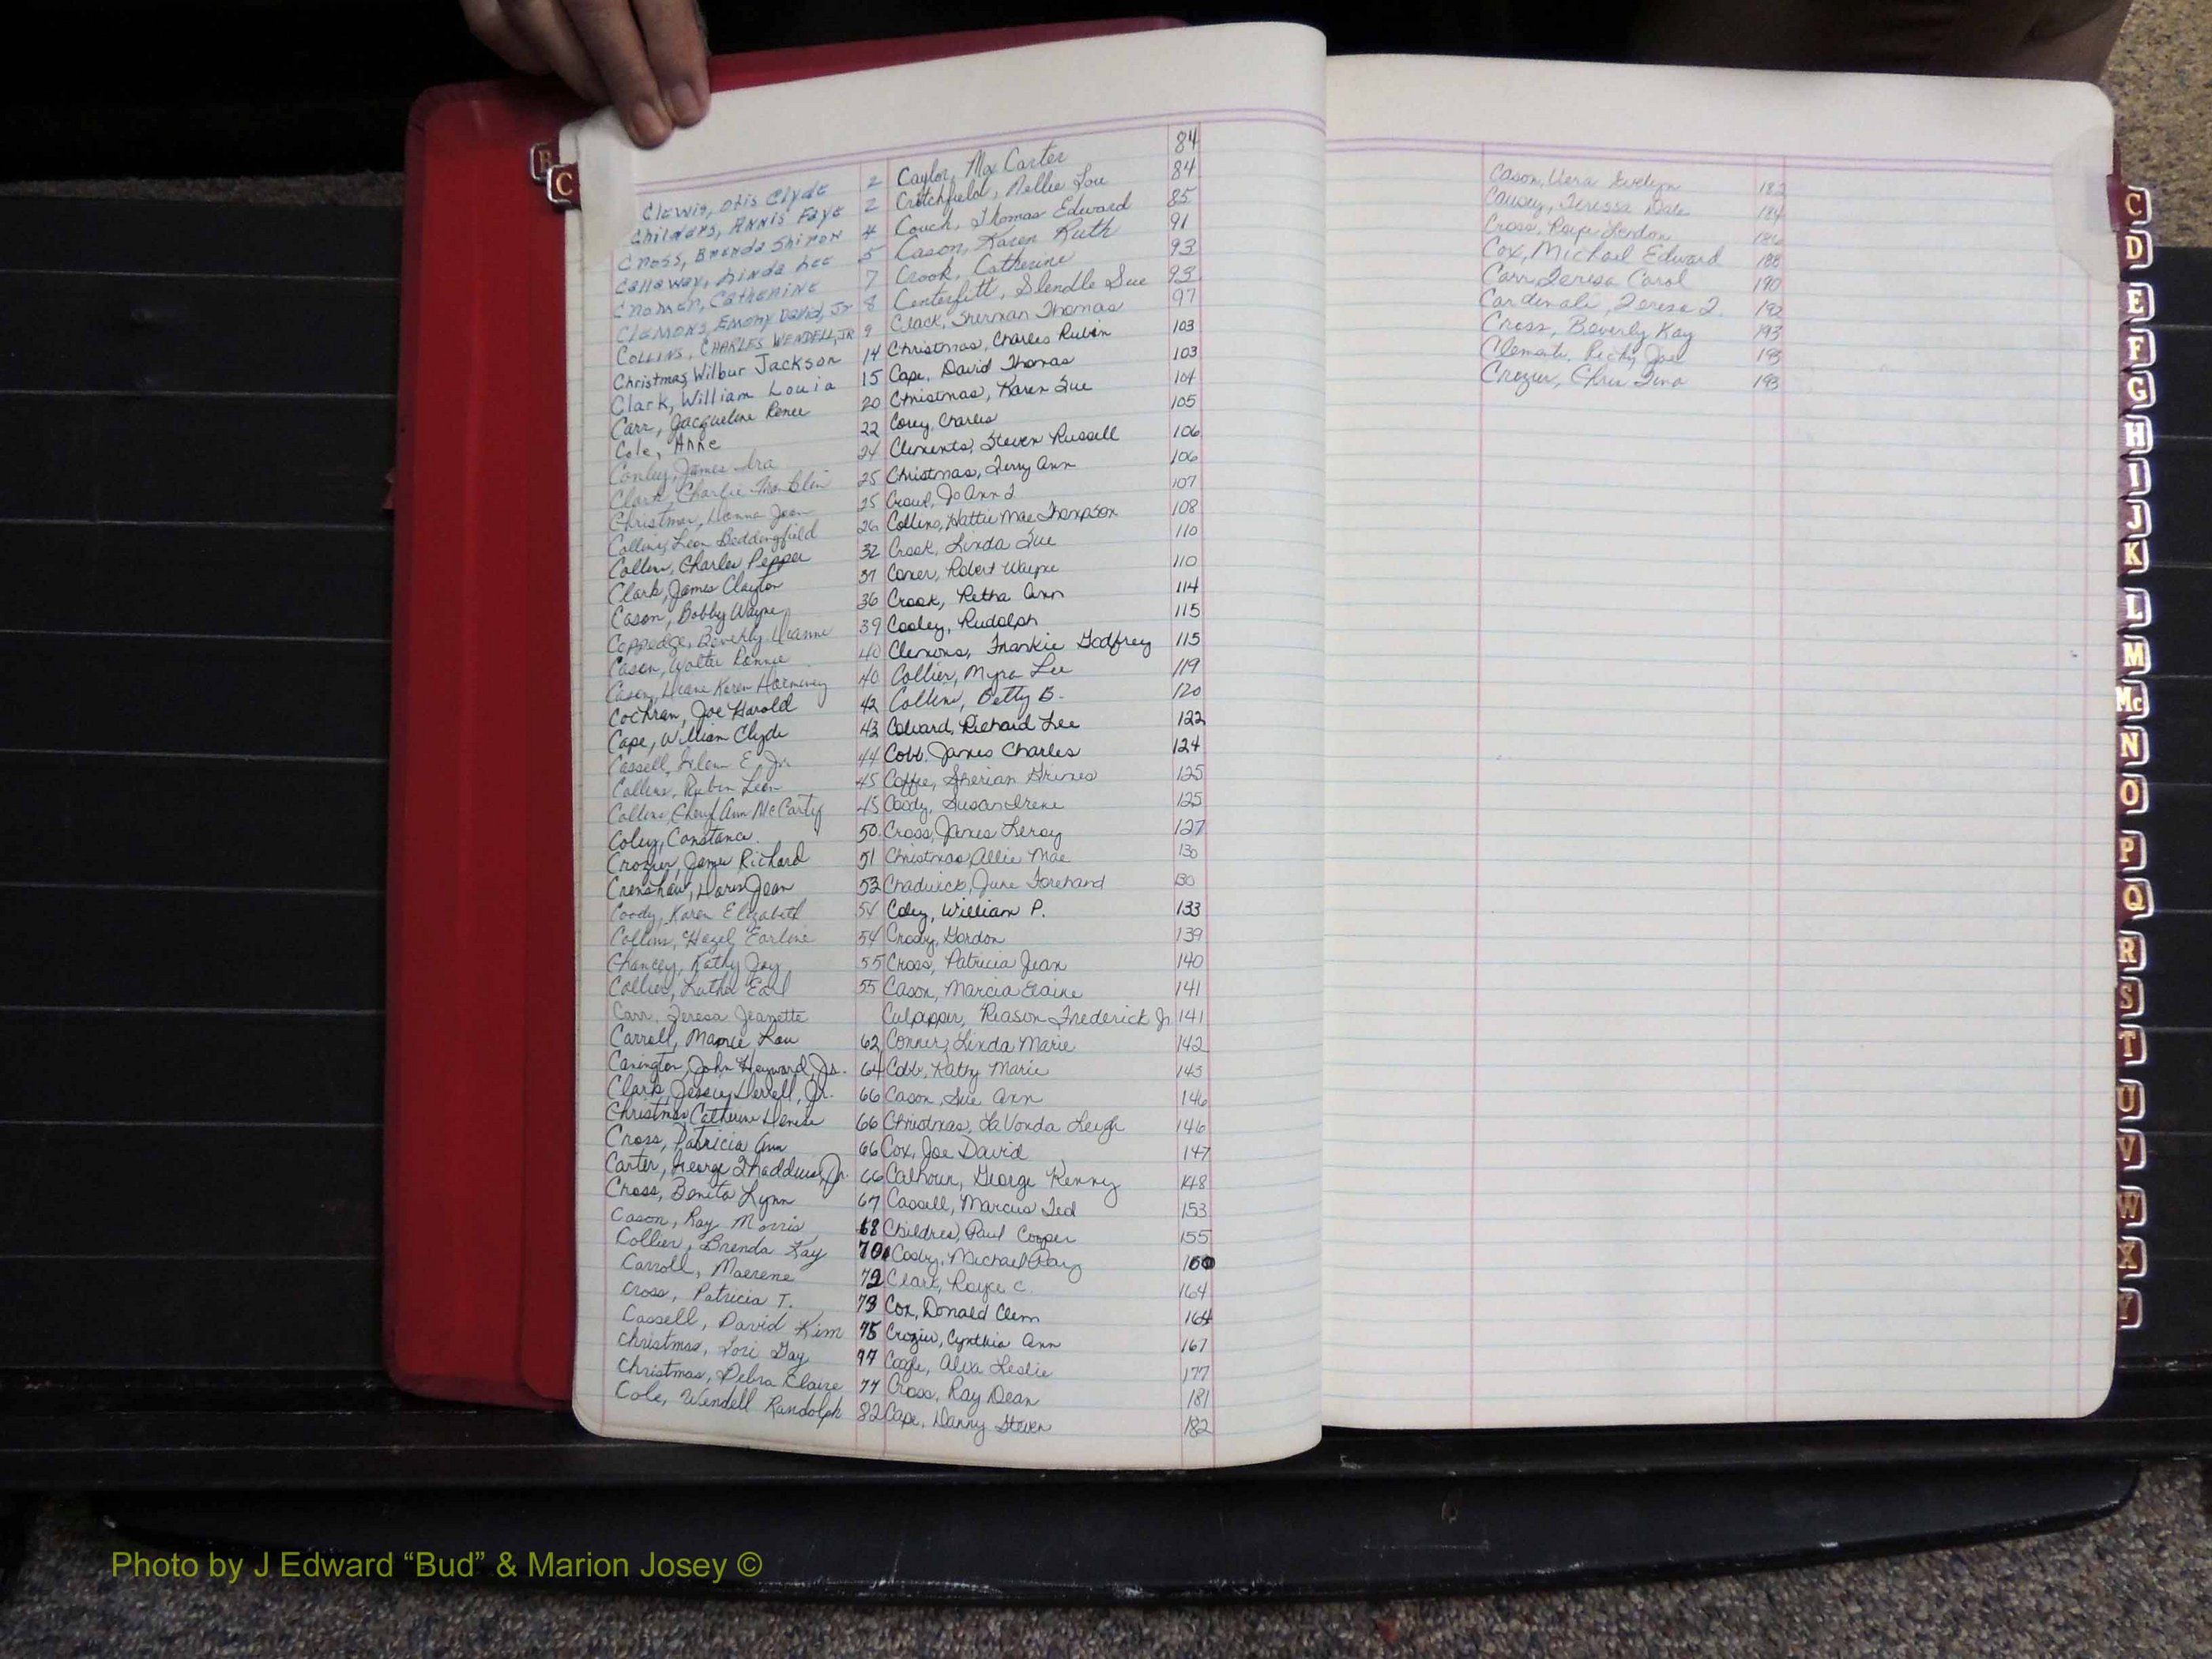 B
C
Clewis, Otis Clyde 2
Childers, Annis Faye 2
Cross, Brenda Shiron 4
Callaway, Linda Lee 5
Catherine 7
Clemons, Emory David, Jr 8
Collins, Charles Wendell, Jr 9
Christmas, Wilbur Jackson 14
Clark, William Louia 15
Carr, Jacqueline Renee 20
Cole, Anne 22
Conley, James Ira 24
Clark, Charlie Franklin 25
Christmas, Donna Jean 25
Collins, Leon Beddingfield 26
Collins, Charles Pepper 32
Clark, James Clayton 37
Cason, Bobby Wayne 36
Coppedge, Beverly Dianne 39
Cason, Walter Ronnie 40
Cason, Diane Karen 40
Cochran, Joe Harold 42
Cape, William Clyde 43
Cassell, E., Jr. 44
Collins, Rubin Leon 45
Collins, Cheryl Ann McCarty 45
Coley, Constance 50
Crozier, James Richard 51
Crenshaw, Doris Jean 53
Coody, Karen Elizabeth 54
Collins, Hazel Earline 54
Chancey, Kathy Joy 55
Collier, Luther Earl 55
Carr, Teresa Jeanette
Carroll, Mamie Lou 62
Carington, John Heyward, Jr. 64
Clark, Jessie Derrell, Jr. 66
Christmas, Catherine Denise 66
Cross, Patricia Ann 66
Carter, George Thaddeus, Jr. 66
Cross, Benita Lynn 67
Cason, Ray Morris 68
Collier, Brenda Kay 70
Carroll, Maerene 72
Cross, Patricia T. 73
Cassell, David Kim 75
Christmas, Lori Gay 77
Christmas, Debra Claire 77
Cole, Wendell Randolph 82
Caylor, Max Carter 84
Crutchfield, Nellie Lou 84
Couch, Thomas Edward 85
Cason, Karen Ruth 91
Crook, Catherine 93
Centerfitt, Slendle Sue 93
Clack, Sherman Thomas 97
Christmas, Charles Rubin 103
Cape, David Thomas 103
Christmas, Karen Sue 104
Corey, Charles 105
Clements, Steven Russell 106
Christmas, Terry Ann 106
Jo Ann 107
Collins, Hattie Mae Thompson 108
Crook, Linda Sue 110
Comer, Robert Wayne 110
Crook, Retha Ann 114
Cooley, Rudolph 115
Clemons, Frankie Godfrey 115
Collier, Myra Lee 119
Collins, Betty B. 120
Colvard, Richard Lee 122
Cobb, James Charles 124
Coffie, Sherian Grimes 125
Coody, Susan Irene 125
Cross, James Leroy 127
Christmas, Allie Mae 130
Chadwick, June Forehand 130
Coley, William P. 133
Crosby, Gordon 139
Cross, Patricia Jean 140
Cason, Marcia Elaine 141
Culpepper, Reason Frederick Jr 141
Conner, Linda Marie 142
Cobb, Kathy Marie 143
Cason, Sue Ann 146
Christmas, LaVonda Leigh 146
Cox, Joe David 147
Calhoun, George Kenny 148
Cassell, Marcus Ted 153
Childres, Paul Cooper 155
Cosby, Michael Ray 160
Clark, Royce C. 164
Cox, Donald Clem 164
Crozier, Cynthia Ann 167
Cogle, Alva Leslie 177
Cross, Ray Dean 181
Cape, Danny Steven 182
Cason, Vera Evelyn 182
Causey, Teressa Dale 184
Cross, 186
Cox, Michael Edward 188
Carr, Teresa Carol 190
Cardinali, Teresa 192
Cross, Beverly Kay 193
Clements, Ricky Joe 193
Crozier, Chris Tina 193
C
D
E
F
G
H
I
J
K
L
M
Mc
N
O
P
Q
R
S
T
U
V
W
X
Y
Photo by J Edward “Bud” & Marion Josey ©